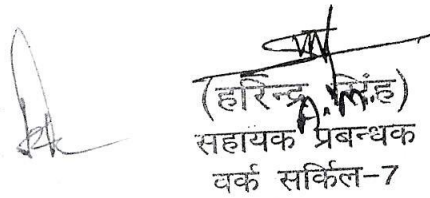 (हरिन्द्र सिंह)
A.M.
सहायक प्रबन्धक
वर्क सर्किल-7